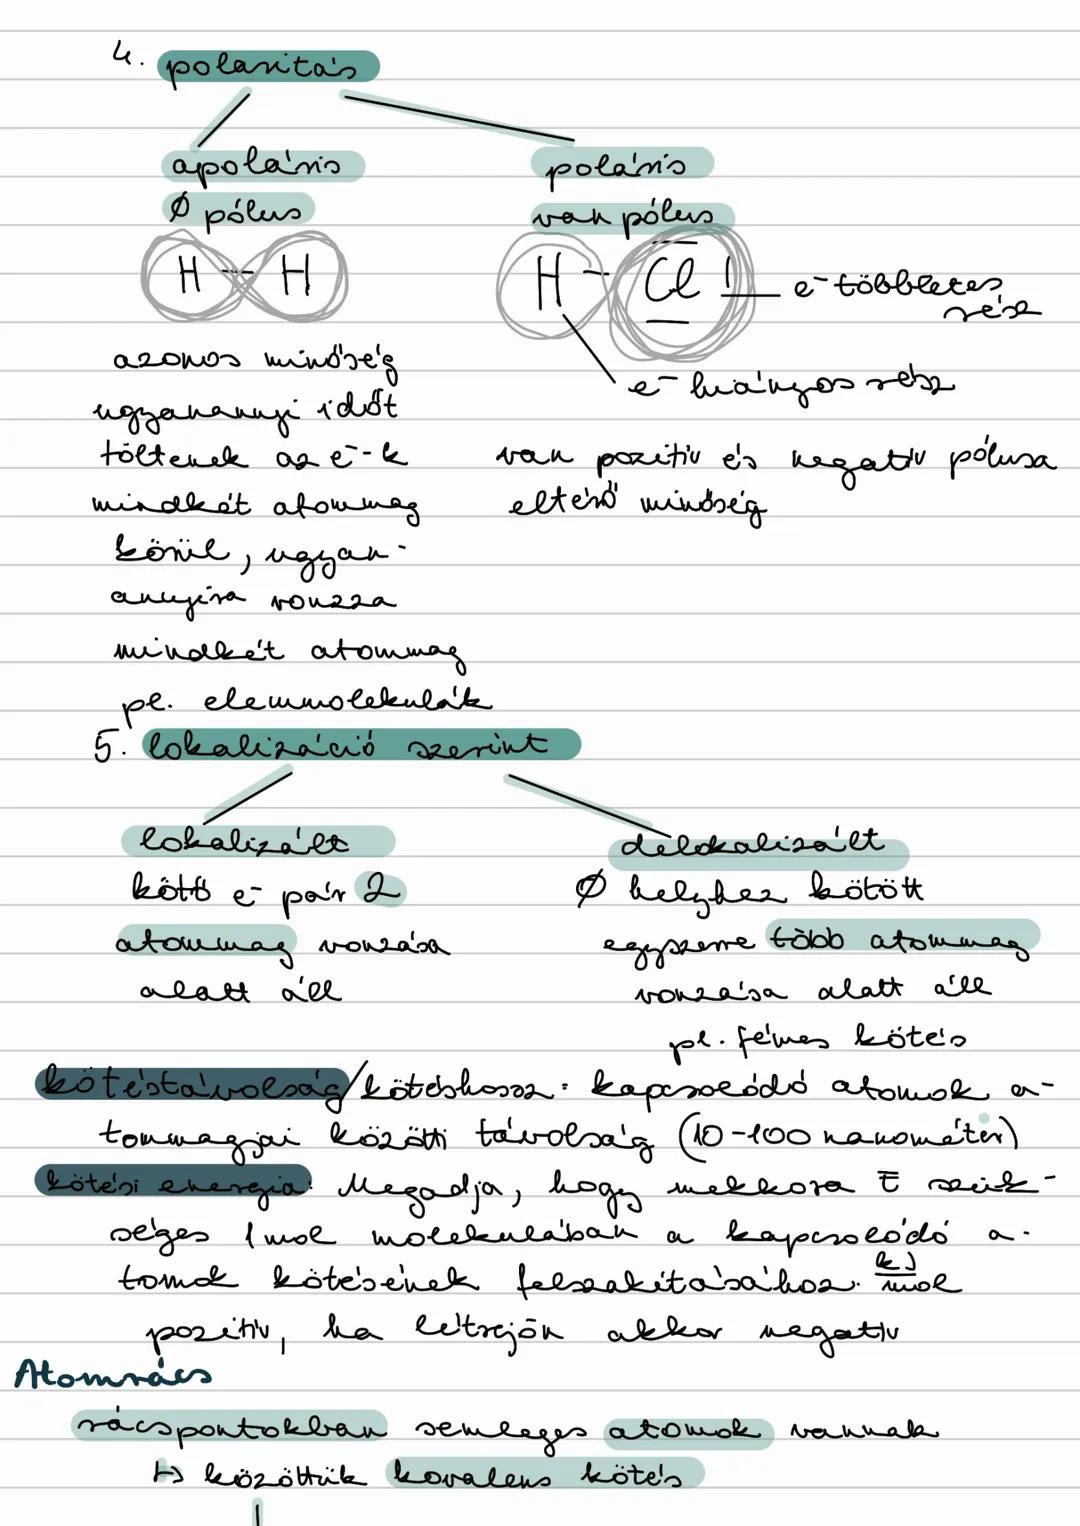 4. polaritás
apoláris
Ø pólus
H - H
azonos minőség
ugyanannyi időt
töltenek az e⁻-k
mindkét atommag
körül, ugyan-
annyira vonzza
mindkét atommag
pl. elemmolekulák
poláris
van pólus
H - Cl
e⁻ többletes
rész
e⁻ hiányos rész
van pozitív és negatív pólusa
eltérő minőség
5. lokalizáció szerint
lokalizált
kötő e⁻ pár 2
atommag vonzása
alatt áll
delokalizált
Ø helyhez kötött
egyszerre több atommag
vonzása alatt áll
pl. fémes kötés
kötéstávolság/kötéshossz: kapcsolódó atomok a-
tommagjai közötti távolság (10-100 nanométer)
kötési energia: Megadja, hogy mekkora E szük-
séges 1 mol molekulában a kapcsolódó a-
tomok kötésének felszakításához. kJ/mol
pozitív, ha létrejön akkor negatív
Atomrács
rácspontokban semleges atomok vannak
↳ közöttük kovalens kötés